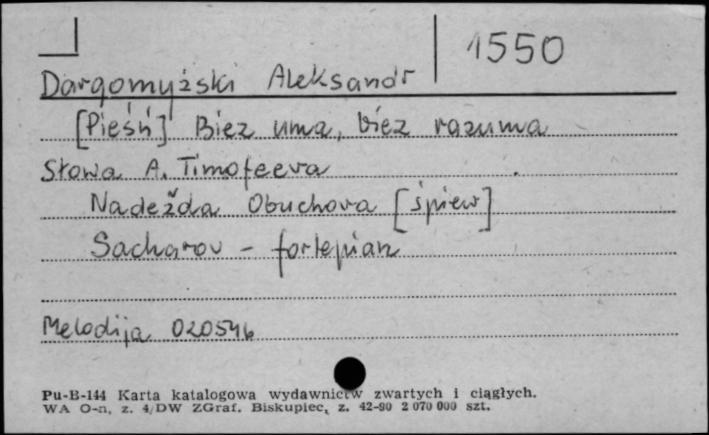 1550
Dargomyżski Aleksandr
[Pieśń] Biez uma, biez razuma
Słowa A. Timofeeva
Nadežda Obuchova [śpiew]
Sacharov - fortepian
Melodija 020546
Pu-B-144 Karta katalogowa wydawnictw zwartych i ciągłych.
WA O-n, z. 4/DW ZGraf. Biskupiec, z. 42-90 2 070 000 szt.